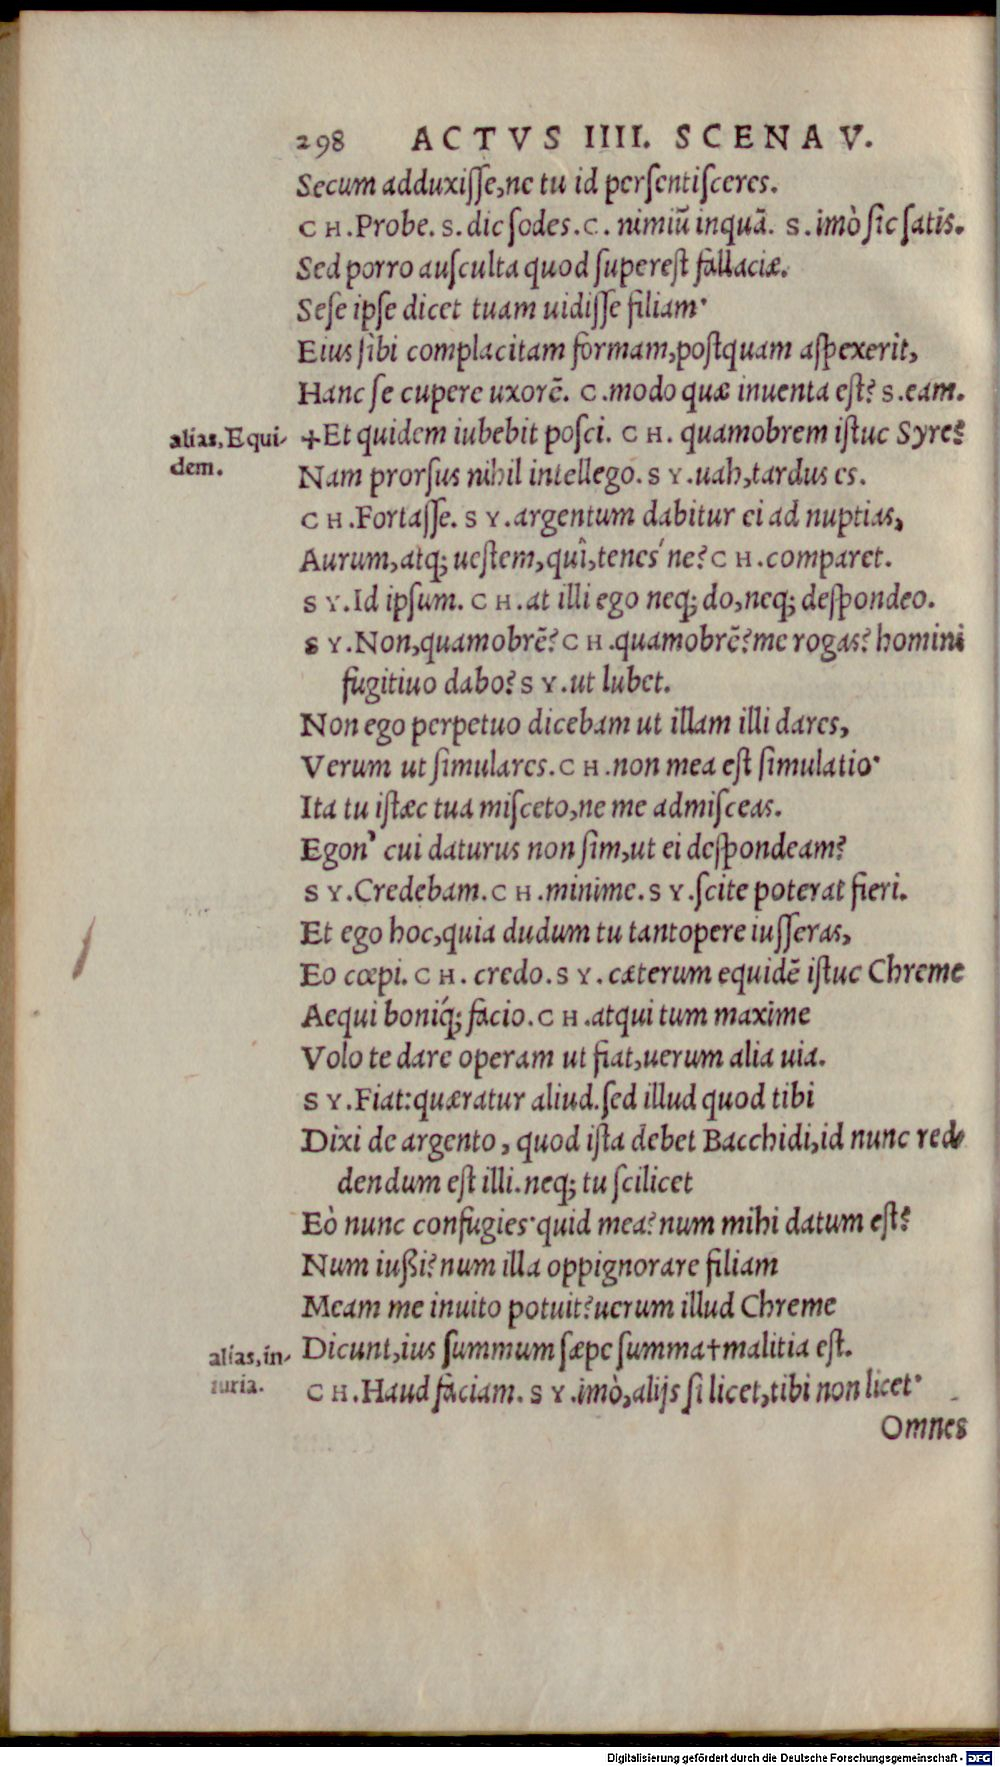 298 ACTVS IIII. SCENA V.
Secum adduxiſſe,ne tu id perſentiſceres.
CH.Probe. S.dic ſodes.C. nimiū inquā. S.imò ſic ſatis.
Sed porro auſculta quod ſupereſt fallaciæ.
Seſe ipſe dicet tuam uidiſſe filiam·
Eius ſibi complacitam formam,poſtquam aſpexerit,
Hanc ſe cupere uxorē. C.modo quæ inuenta eſt? S.eam.
alias, Equi-
dem.
+Et quidem iubebit poſci. CH. quamobrem iſtuc Syre?
Nam prorſus nihil intellego. SY.uah,tardus es.
CH.Fortaſſe. SY.argentum dabitur ei ad nuptias,
Aurum,atq; ueſtem,quî,tenes'ne? CH.comparet.
SY.Id ipſum. CH.at illi ego neq; do,neq; deſpondeo.
SY.Non,quamobrē? CH.quamobrē?me rogas? homini
fugitiuo dabo? SY.ut lubet.
Non ego perpetuo dicebam ut illam illi dares,
Verum ut ſimulares.CH.non mea eſt ſimulatio·
Ita tu iſtæc tua miſceto,ne me admiſceas.
Egon' cui daturus non ſim,ut ei deſpondeam?
SY.Credebam.CH.minime.SY.ſcite poterat fieri.
Et ego hoc,quia dudum tu tantopere iuſſeras,
Eo cœpi. CH. credo.SY.cæterum equidē iſtuc Chreme
Aequi boniq́; facio.CH.atqui tum maxime
Volo te dare operam ut fiat,uerum alia uia.
SY.Fiat:quæratur aliud.ſed illud quod tibi
Dixi de argento, quod iſta debet Bacchidi,id nunc red-
dendum eſt illi.neq; tu ſcilicet
Eò nunc confugies·quid mea?num mihi datum eſt?
Num iußi?num illa oppignorare filiam
Meam me inuito potuit?uerum illud Chreme
alias, in-
iuria.
Dicunt,ius ſummum ſæpe ſumma+malitia eſt.
CH.Haud faciam. SY.imò,alijs ſi licet,tibi non licet·
Omnes
Digitalisierung gefördert durch die Deutsche Forschungsgemeinschaft - DFG